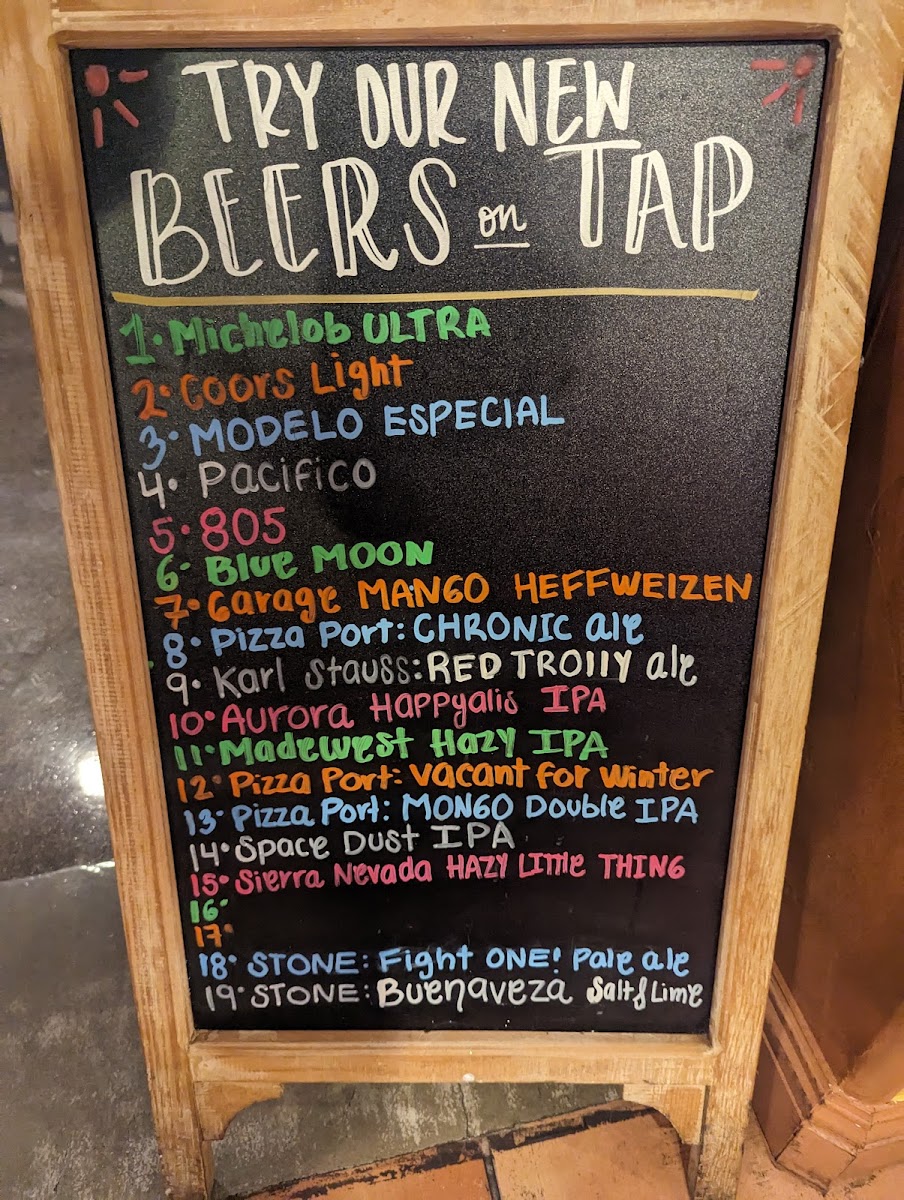 TRY OUR NEW
BEERS on TAP
1. Michelob ULTRA
2. Coors Light
3. MODELO ESPECIAL
4. Pacifico
5. 805
6. Blue MOON
7. Garage MANGO HEFFWEIZEN
8. Pizza Port: CHRONIC ale
9. Karl Stauss: RED TROllY ale
10. Aurora Happyalis IPA
11. Madewest Hazy IPA
12. Pizza Port: Vacant for Winter
13. Pizza Port: MONGO Double IPA
14. Space Dust IPA
15. Sierra Nevada HAZY Little THING
16.
17.
18. STONE: Fight ONE! Pale ale
19. STONE: Buenaveza Salt & Lime